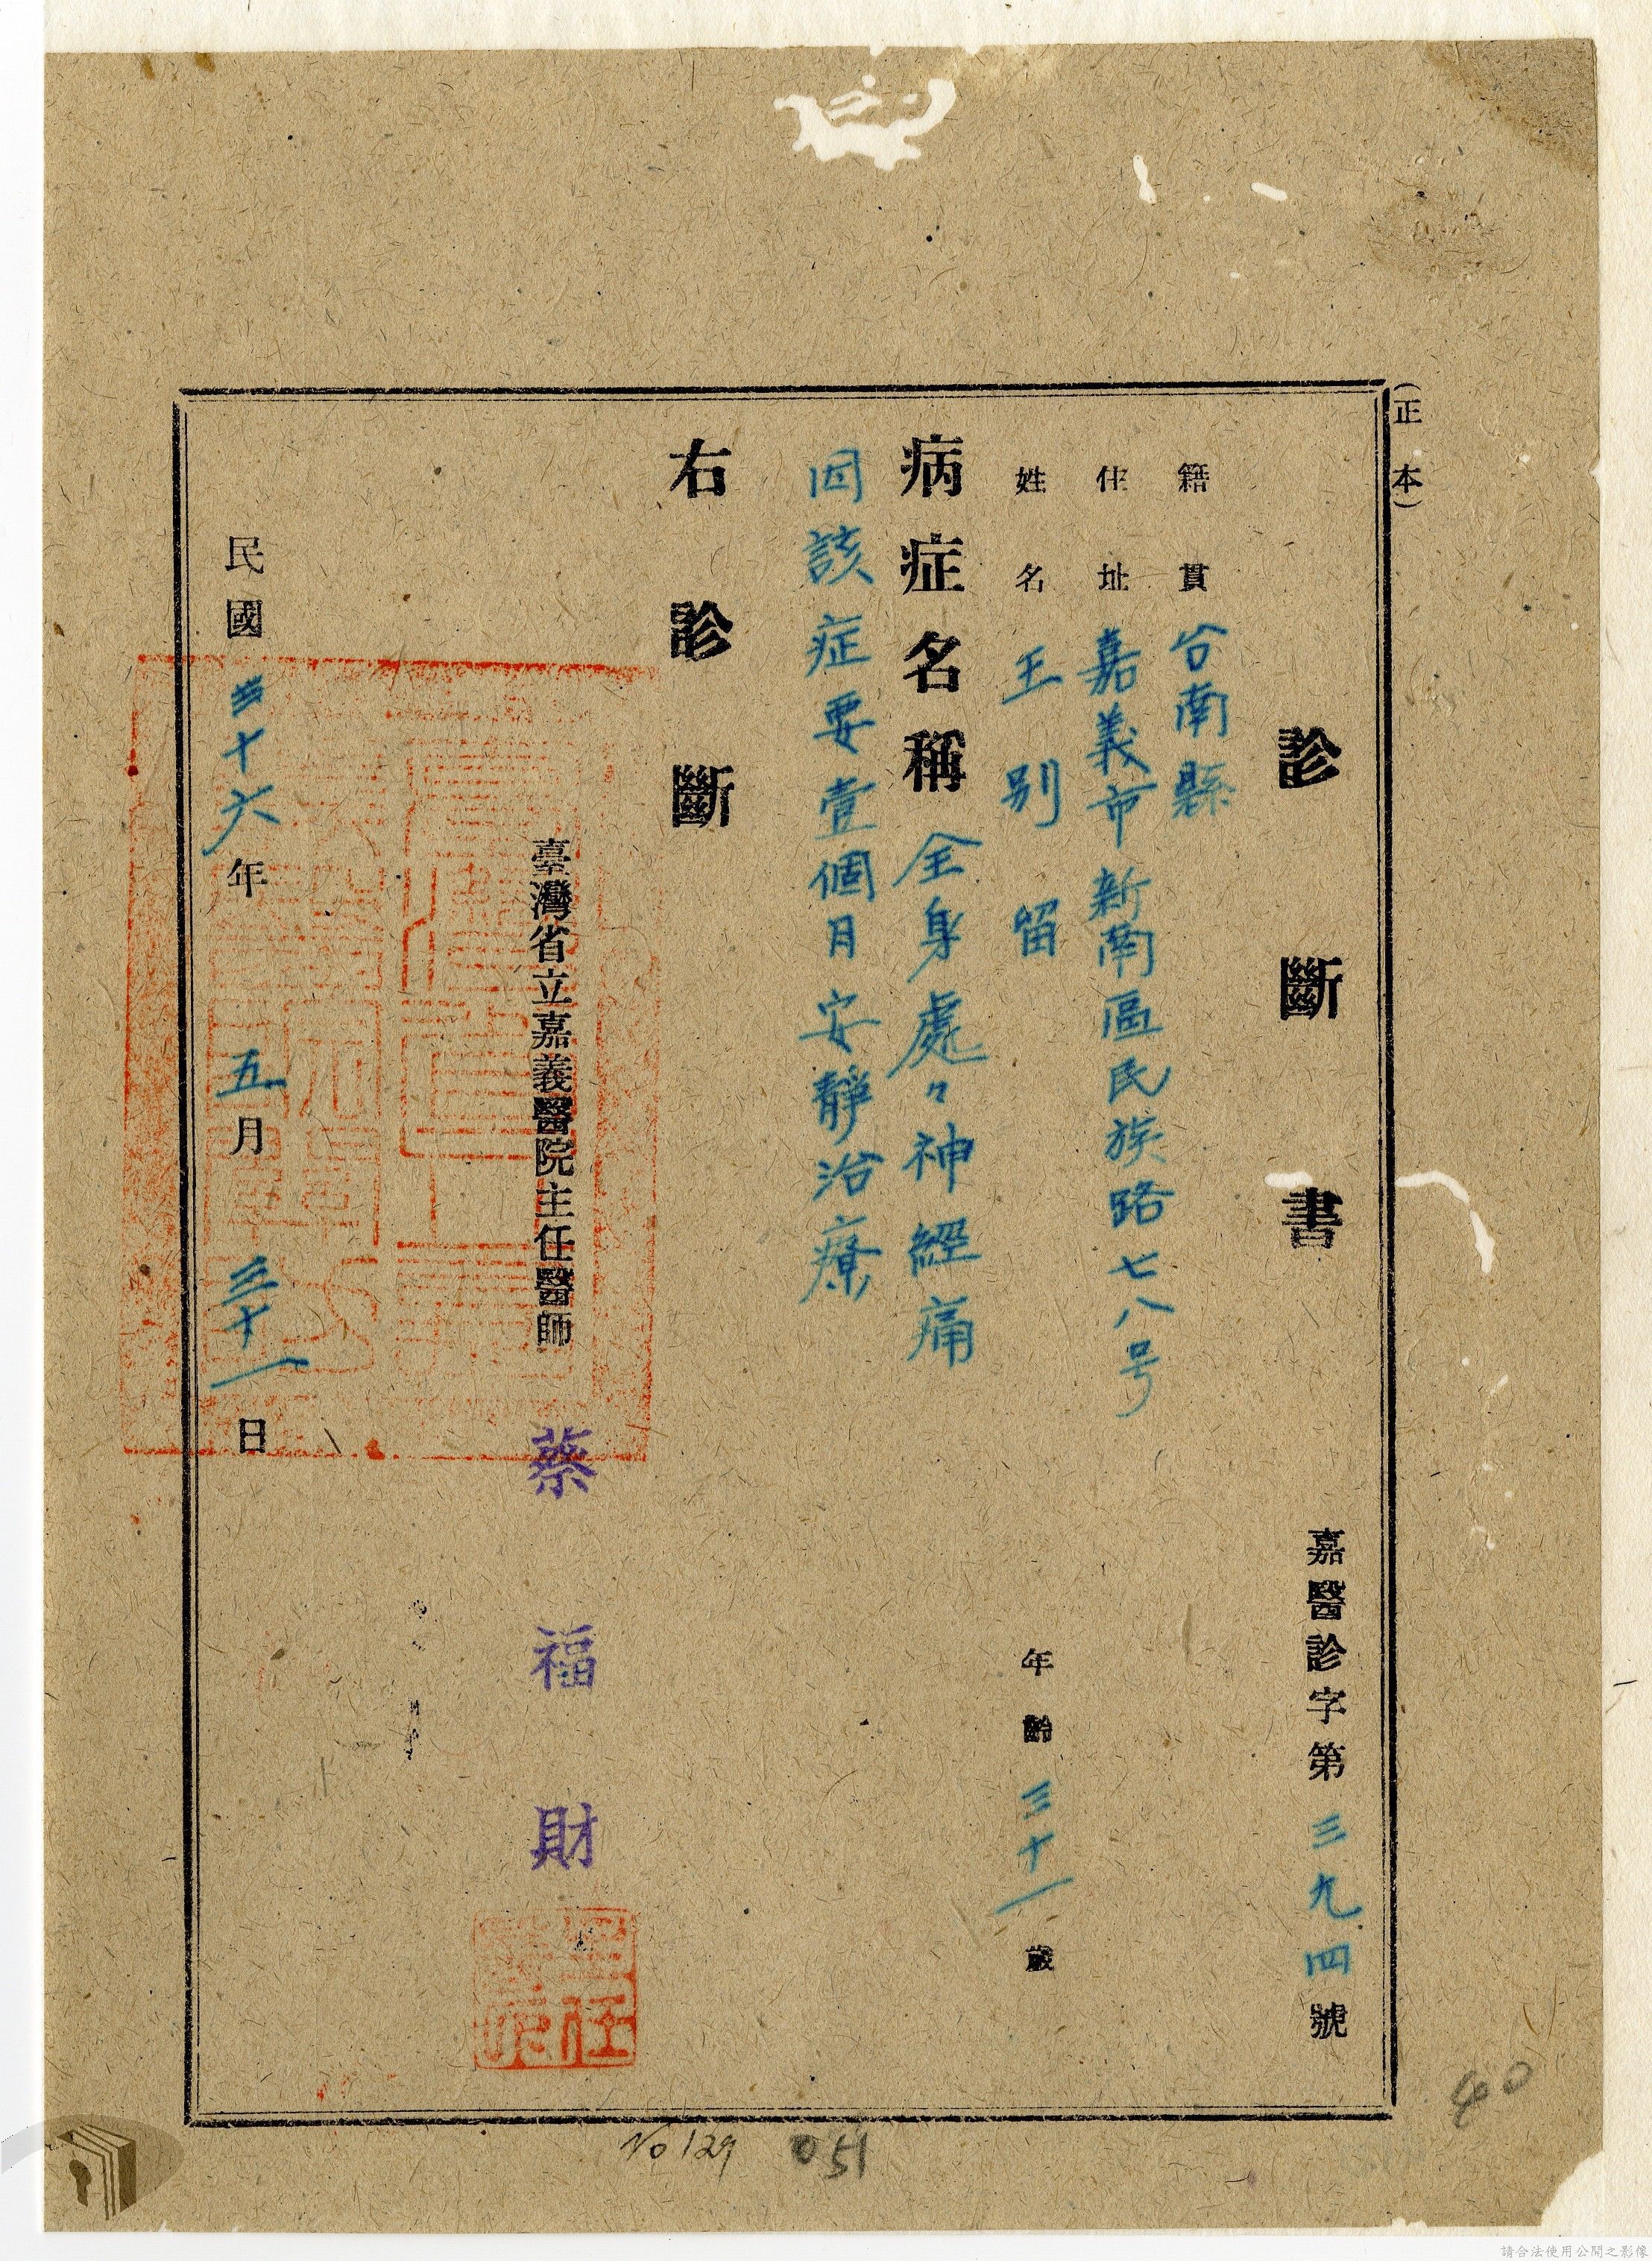 (正本)
診斷書
嘉醫診字第三九四號
籍貫 台南縣
住址 嘉義市新南區民族路七八号
姓名 王別留 年齡 三十一歲
病症名稱 全身處々神經痛
因該症要壹個月安靜治療
右診斷
臺灣省立嘉義醫院主任醫師 蔡福財
民國三十六年五月三十一日
40
No 129 051
請合法使用公開之影像